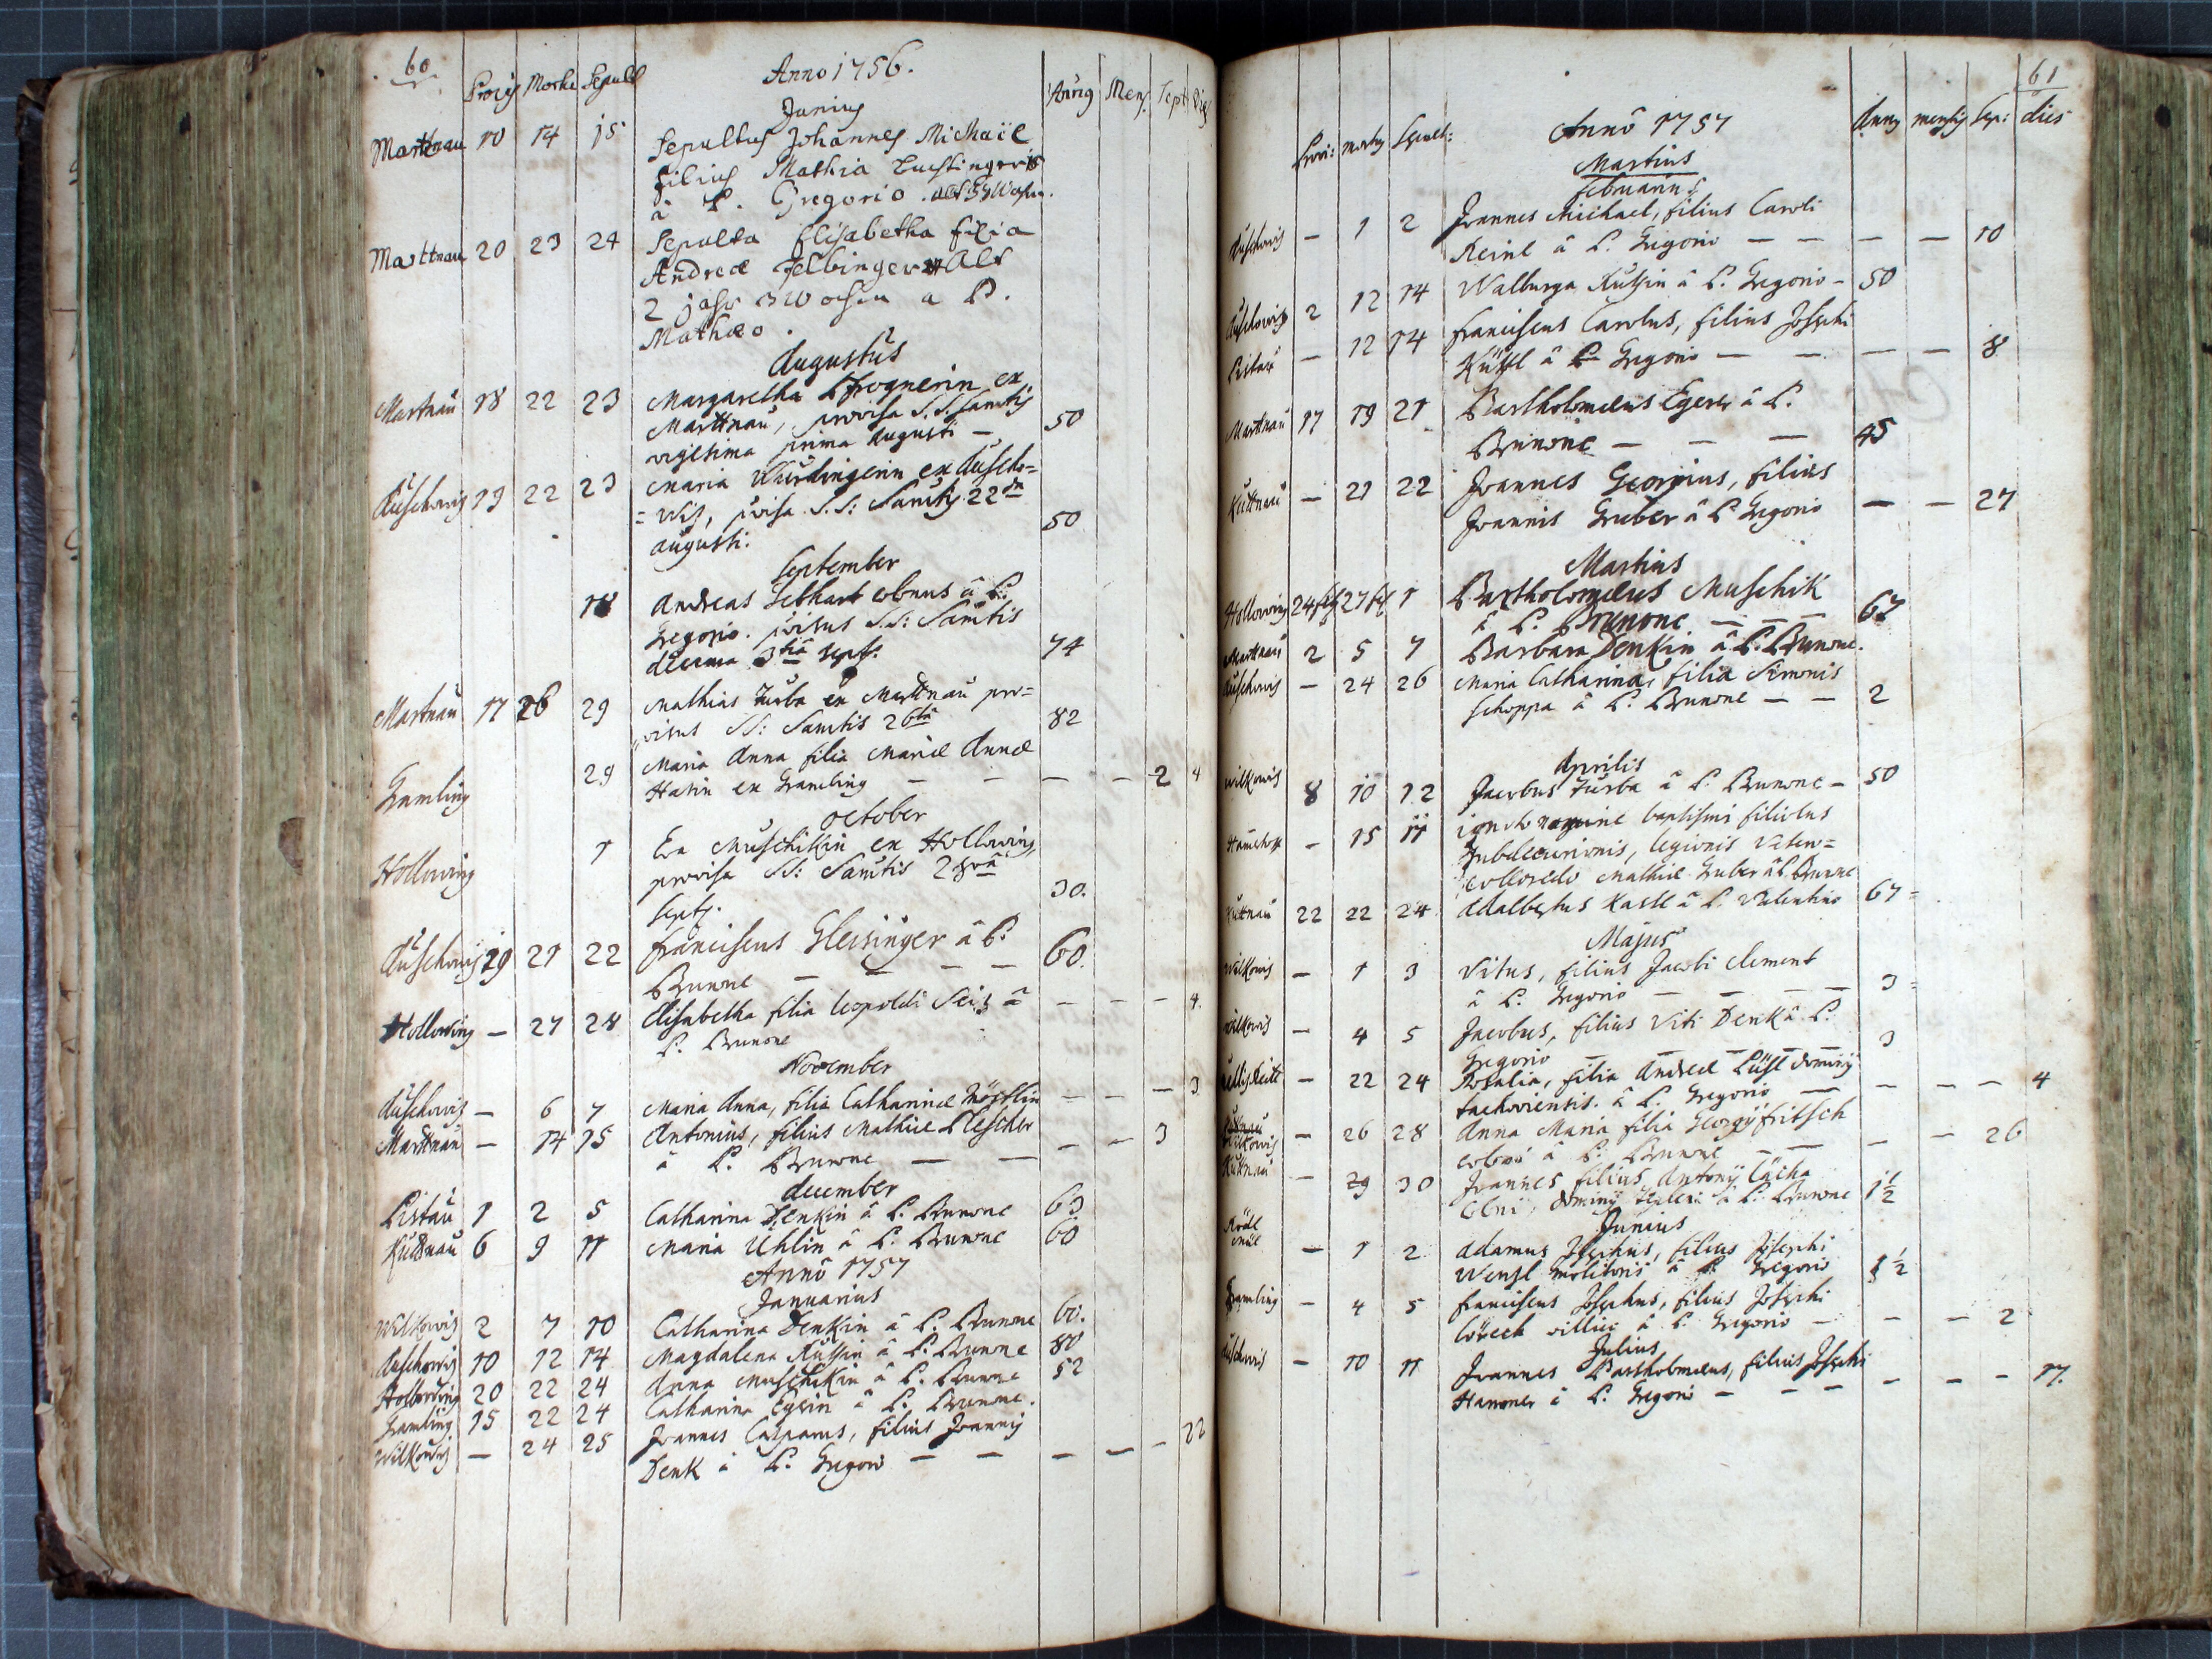 60
Provis Mortu Sepult Anno 1756. Annis Mens. Sept. Dies
Junius
Marttnau 10 14 15 Sepultus Johannes Michaël
filius Mathia
â P. Gregorio.
Marttnau 20 23 24 Sepulta Elisabetha filia
Andreæ Felbinger Alt
2 jahr 3 Wochen a P.
Mathæo.
Augustus
Marttnau 18 22 23 Margaretha Pfrognerin ex
Marttnau, provisa S.S. Sacmtis
vigesima prima Augusti — 50
Auschowis 19 22 23 Maria Wurdingerin ex Auscho=
=wis, pvisa S.S: Sacmtis 22da
augusti. 50
September
18 Andreas Gebhart colonus â P.
Gregorio. pvisus S.S: Sacmtis
decima 3tia Septr. 74
Marttnau 17 26 29 Mathias Turba ex Marttnau pro=
visus SS: Sacmtis 26ta 82
Gramling 29 Maria Anna filia Mariæ Annæ
Hasin ex Gramling — — — — 2 4
October
Hollowing 1 Eva Muschikin ex Hollowing,
provisa SS: Sacmtis 28va
Septr. 30.
Auschowis 19 21 22 Franciscus Gleisinger â P.
Brunone — — — — 60.
Hollowing — 27 28 Elisabetha filia Leopoldi Seiz â — — — 4.
P. Brunone
November
Auschowis — 6 7 Maria Anna, filia Catharinæ Wöstlin — — — 3
Marttnau — 14 15 Antonius, filius Mathiæ Plescher
â P. Brunone — — — — 3
December
Pistau 1 2 5 Catharina Denkin â P. Brunone 63
Kuttnau 6 9 11 Maria Uhlin â P. Brunone 60
Anno 1757
Januarius
Wilkowis 2 7 10 Catharina Denkin â P. Brunone 60.
Auschowis 10 12 14 Magdalena Rutzin â P. Brunone 80
Hollowing 20 22 24 Anna Muschikin â P. Brunone 52
Gramling 15 22 24 Catharina Egerin â P. Brunone.
Wilkowis — 24 25 Joannes Casparus, filius Joannis
Denk â P. Gregorio — — — — — 22
61
Provi: mortus Sepult: Anno 1757 Annus mensis Sep: dies
Martius
Februarius
Auschowis — 1 2 Joannes Michael, filius Caroli
Reinl â P. Gregorio — — — — 10
Auschowis 2 12 14 Walburga Rutzin â P. Gregorio — 50
Pistau — 12 14 Franciscus Carolus, filius Josephi
â P. Gregorio — — — — 8
Marttnau 17 19 21 Bartholomæus Egerer â P.
Brunone — — — 45
Kuttnau — 21 22 Joannes Georgius, filius
Joannis Gruber â P. Gregorio — — 27
Martius
Hollowing 24 feb 27 feb 1 Bartholomæus Muschik
â P. Brunone — — — 67
Marttnau 2 5 7 Barbara Denkin â P. Brunone.
Auschowis — 24 26 Maria Catharina, filia Simonis
Schoppa â P. Brunone — — 2
Aprilis
Wilkowis 8 10 12 Jacobus Turba â P. Brunone — 50
— 15 17 ignoto nomine baptismi filiolus
Subdecurionis, legionis Veten=
colloredo Mathiæ Gruber â P. Brunone
Kuttnau 22 22 24 Adalbertus Kastl â P. Valentino 67=
Majus
Wilkowis — 1 3 Vitus, filius Jacobi Clement
â P. Gregorio — — — — 3=
Wilkowis — 4 5 Jacobus, filius Viti Denk â P.
Gregorio — — — — — 3
— 22 24 Rosalia, filia Andreæ dominij
tachoviensis. â P. Gregorio — — — — 4
Wilkowis — 26 28 Anna Maria filia Georgij Fritsch
coloni â P. Brunone — — — — 26
Kuttnau — 29 30 Joannes filius Antonij
Coloni, dominij â P. Brunone 1½
Junius
— 1 2 Adamus Josephus, filius Josephi
Wenzl molitoris â P. Gregorio 1½
Gramling — 4 5 Franciscus Josephus, filius Josephi
villici â P. Gregorio — — — 2
Julius
Auschowis — 10 11 Joannes Bartholomæus, filius Josephi
Hammer â P. Gregorio — — — — — — 17.